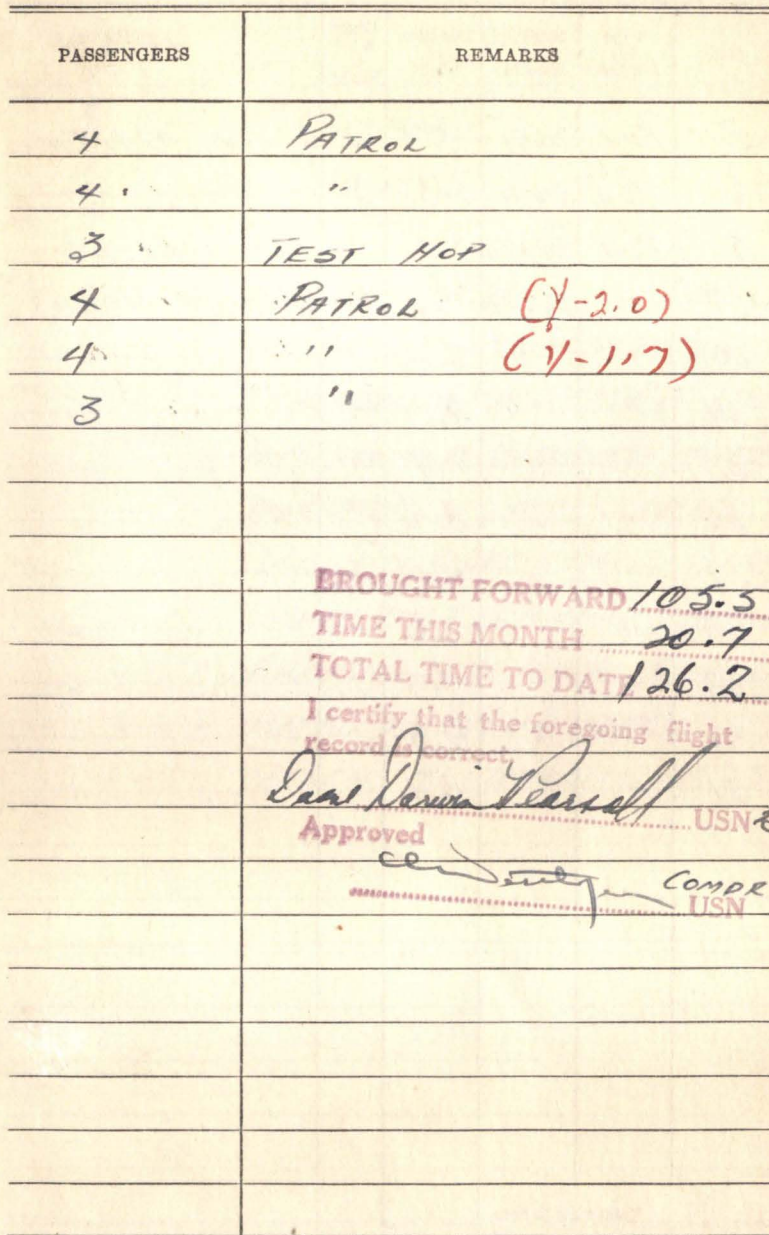 PASSENGERS REMARKS
4 PATROL
4 "
3 TEST HOP
4 PATROL (Y-2.0)
4 " (Y-1.7)
3 "
BROUGHT FORWARD 105.5
TIME THIS MONTH 20.7
TOTAL TIME TO DATE 126.2
I certify that the foregoing flight
record is correct
Duane Darwin Pearsall USN
Approved
COMDR
USN